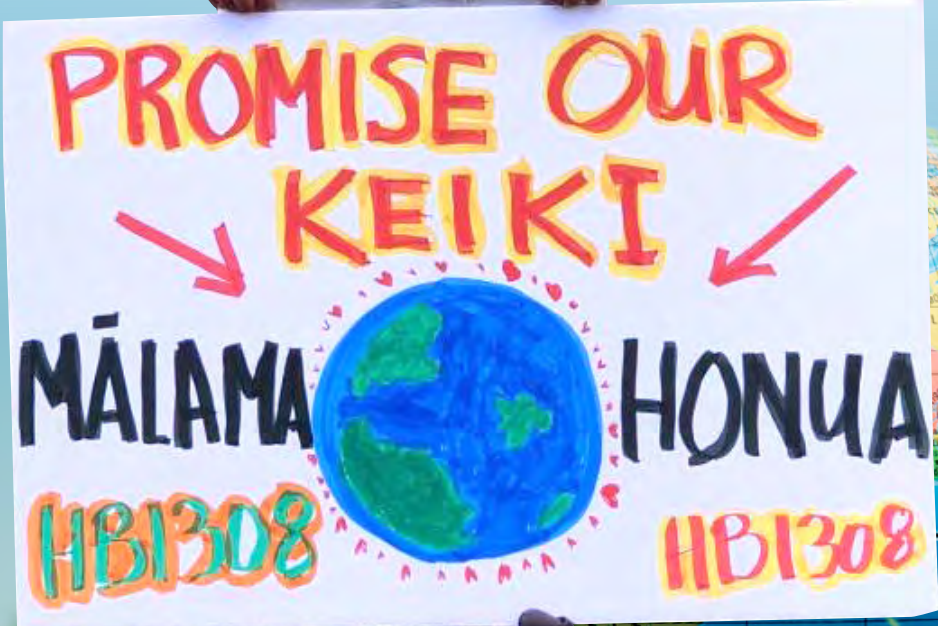 PROMISE OUR
KEIKI
MĀLAMA HONUA
HB1308 HB1308